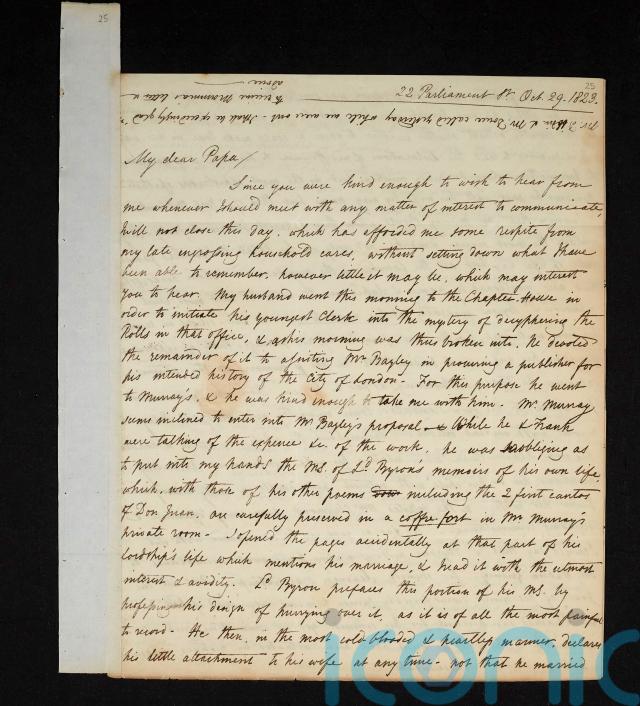 25
25
22 Parliament St. Oct. 29. 1823.
Mr. Towne called yesterday while we were out - I shall be exceedingly glad
to receive Mamma's letter &
My dear Papa/
Since you were kind enough to wish to hear from
me whenever I should meet with any matter of interest to communicate,
I will not close this day, which has afforded me some respite from
my late engrossing household cares, without setting down what I have
been able to remember, however little it may be, which may interest
you to hear. My husband went this morning to the Chapter House in
order to initiate his youngest Clerk into the mystery of decyphering the
Rolls in that office, & as his morning was thus broken into, he devoted
the remainder of it to assisting Mr Bayley in procuring a publisher for
his intended history of the City of London - For this purpose he went
to Murray's, & he was kind enough to take me with him - Mr. Murray
seems inclined to enter into Mr Bayley's proposal - & While he & Frank
were talking of the expence &c. of the work, he was so obliging as
to put into my hands the MS. of Ld. Byron's memoirs of his own life,
which, with those of his other poems including the 2 first cantos
of Don Juan, are carefully preserved in a coffre fort in Mr Murray's
private room - I opened the pages accidentally at that part of his
lordship's life which mentions his marriage, & read it with the utmost
interest & avidity. Ld. Byron prefaces this portion of his MS. by
professing his design of hurrying over it, as it is of all the most painful
to record - He then, in the most cold-blooded & heartless manner, declares
his little attachment to his wife at any time - not that he married
iconic